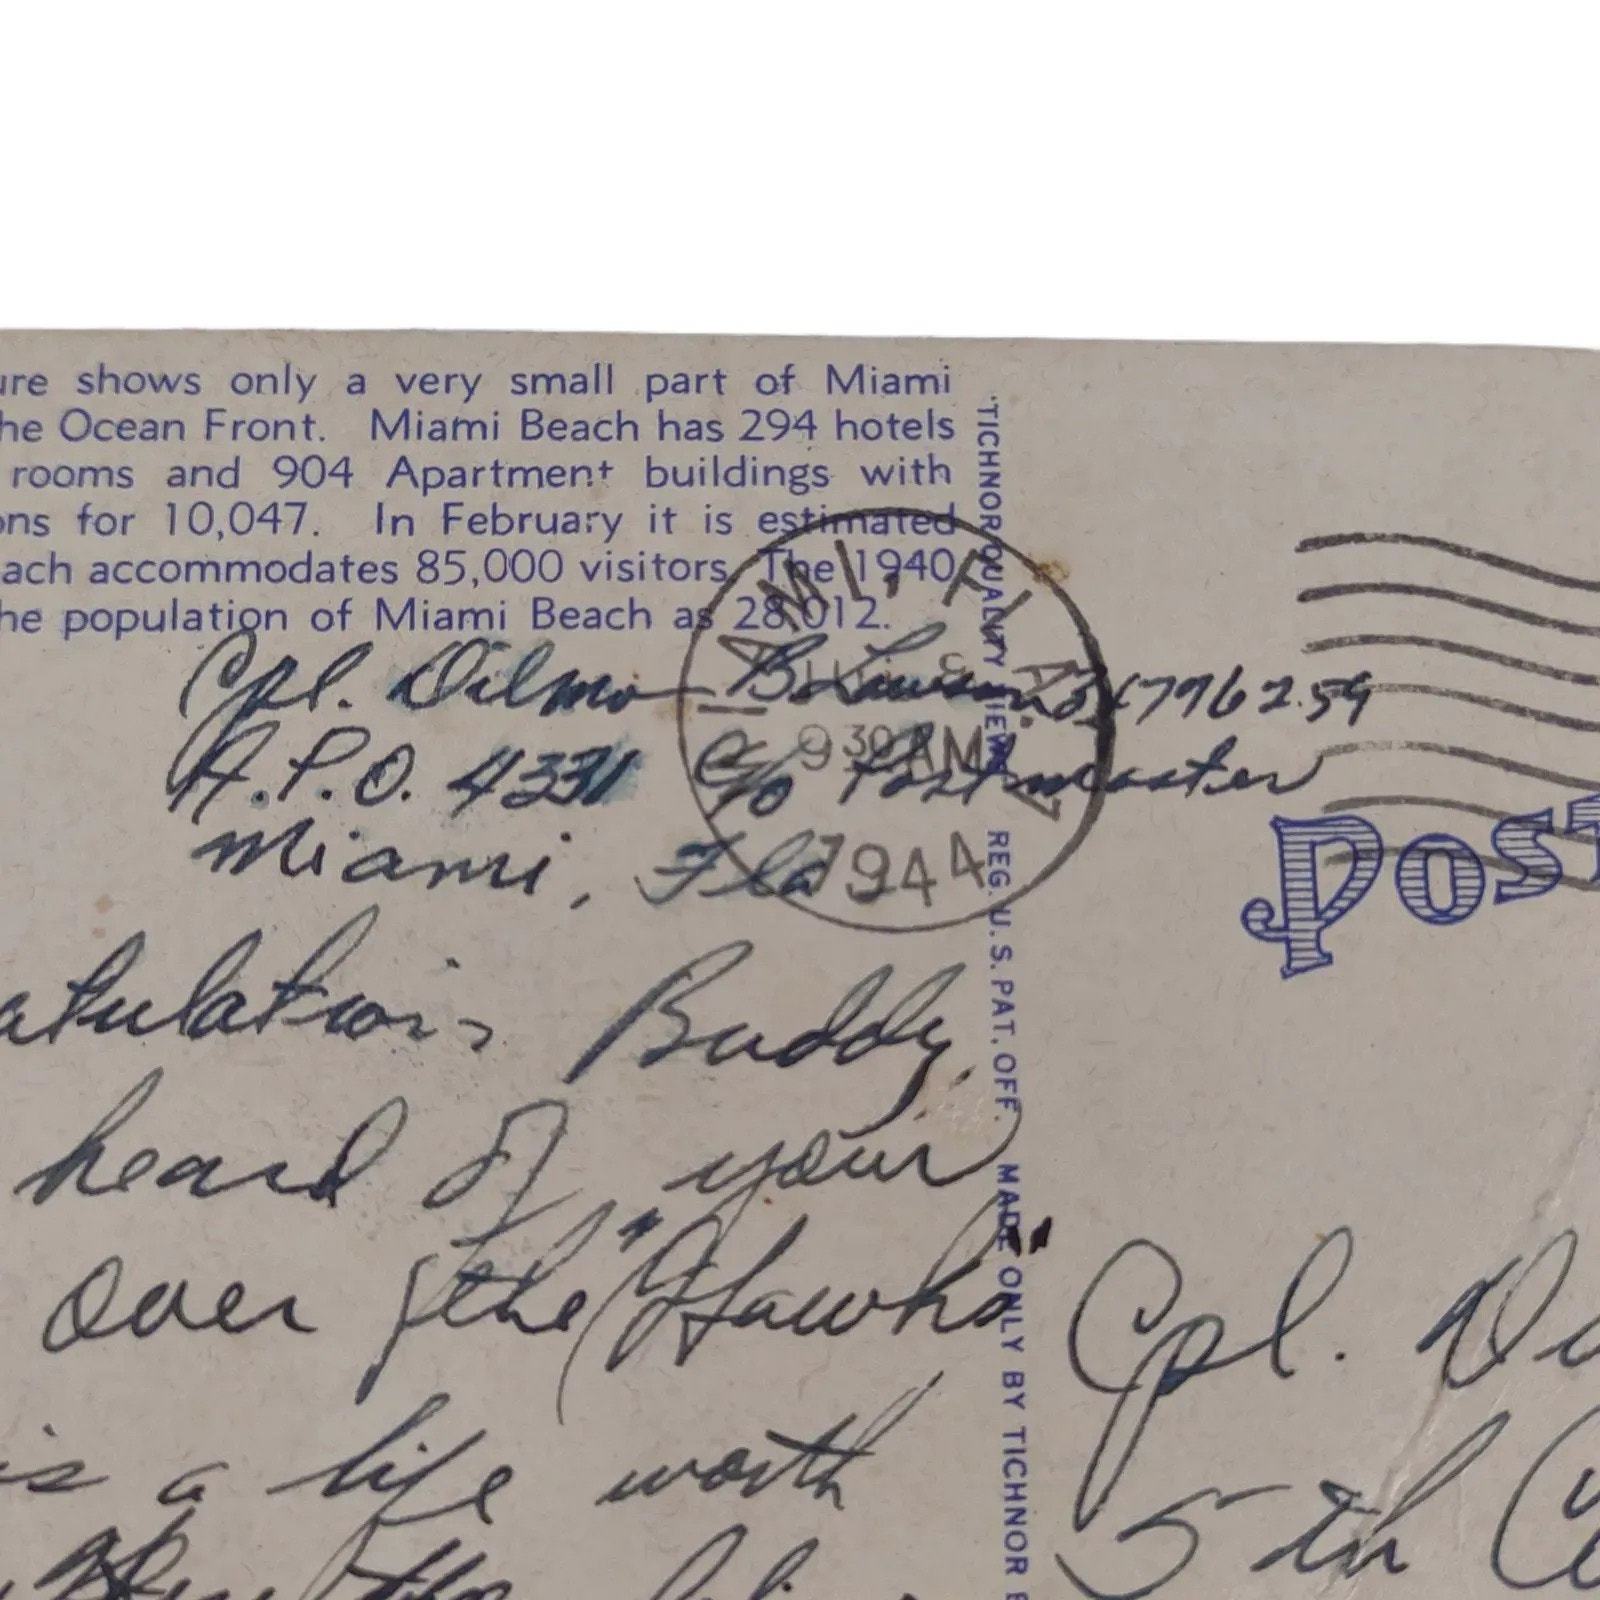 ure shows only a very small part of Miami
he Ocean Front. Miami Beach has 294 hotels
rooms and 904 Apartment buildings with
ons for 10,047. In February it is estimated
ach accommodates 85,000 visitors. The 1940
he population of Miami Beach as 28,012.
Cpl. Dilmo B. Lawson
A.P.O. 4331 c/o Postmaster
Miami, Fla
atulations Buddy,
heard of your
over the "Hawks
is a life worth
MIAMI, FLA.
9 30 AM
1944
"TICHNOR QUALITY VIEWS" REG. U.S. PAT. OFF. MADE ONLY BY TICHNOR B
POST
Cpl. D
5th